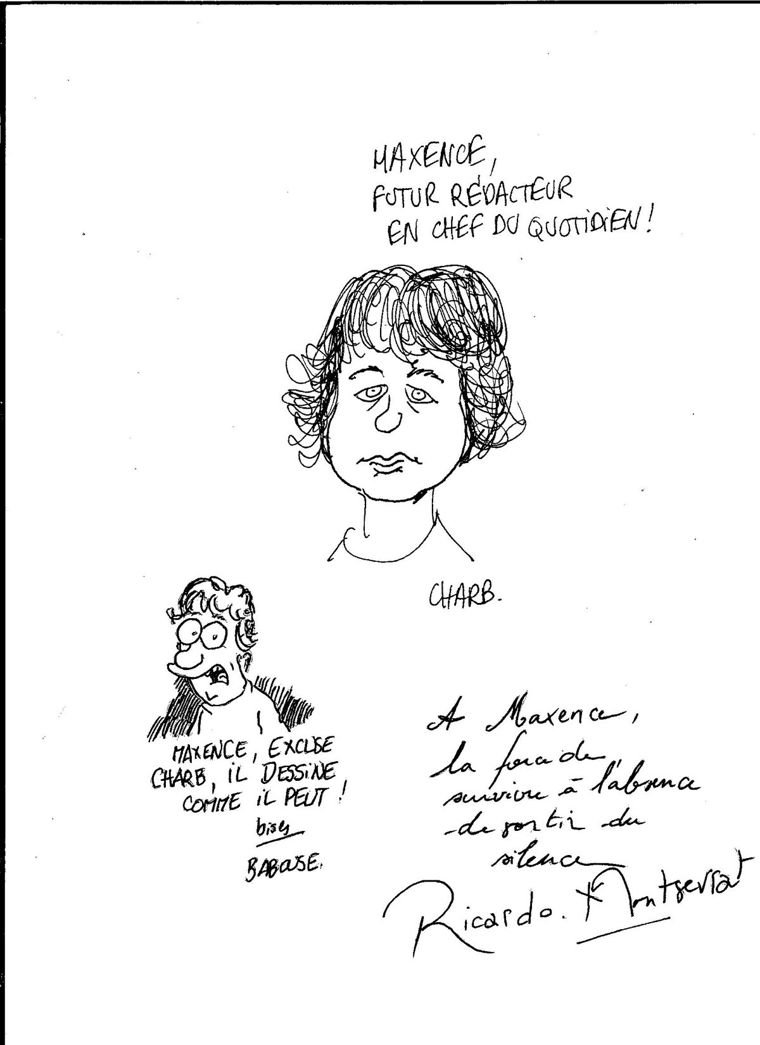 MAXENCE,
FUTUR RÉDACTEUR
EN CHEF DU QUOTIDIEN !
CHARB.
MAXENCE, EXCUSE
CHARB, IL DESSINE
COMME IL PEUT !
bises
BABOUSE.
A Maxence,
la force de
survivre à l'absence
de sortir du
silence
Ricardo. Montserrat